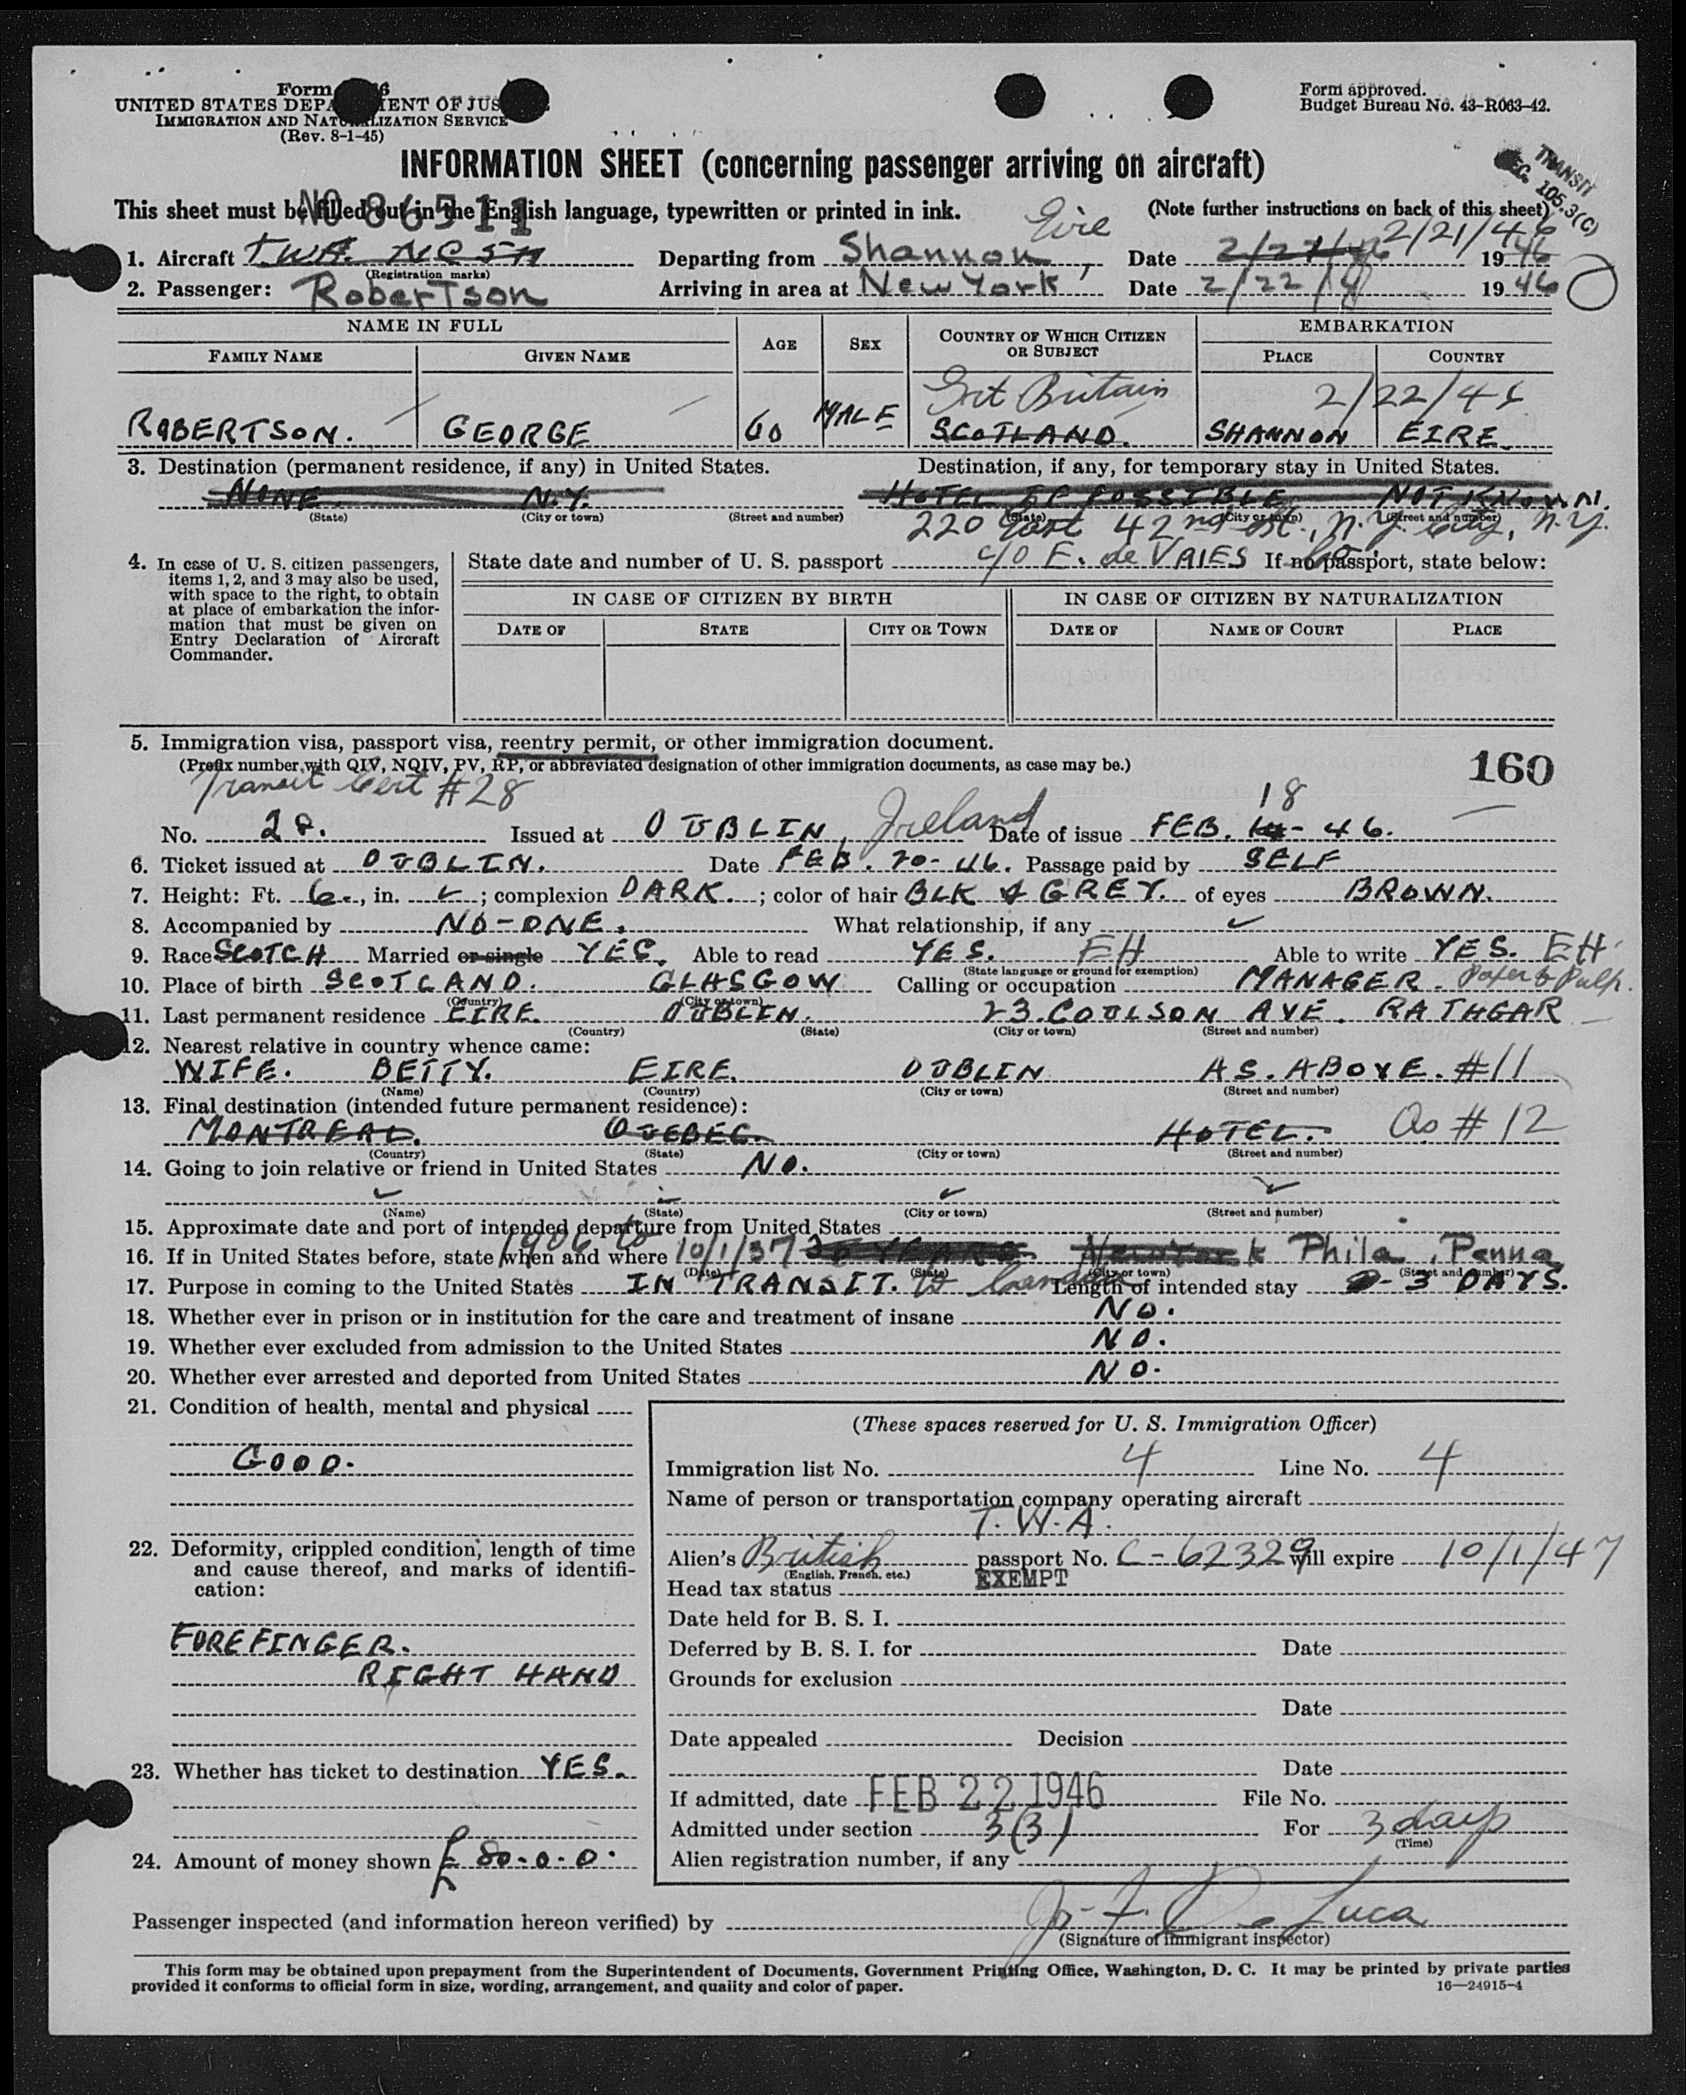 Form 6
UNITED STATES DEPA ENT OF JUS
IMMIGRATION AND NATURALIZATION SERVICE
(Rev. 8-1-45)
Form approved.
Budget Bureau No. 43-R063-42.
INFORMATION SHEET (concerning passenger arriving on aircraft)
TRANSIT
SEC. 105.3(C)
NO 86511
This sheet must be filled out in the English language, typewritten or printed in ink. (Note further instructions on back of this sheet)
Eire 2/21/46
1. Aircraft T.W.A. Departing from Shannon, Date 2/21/46 1946
(Registration marks)
2. Passenger: Robertson Arriving in area at New York Date 2/22/ 1946
NAME IN FULL AGE SEX COUNTRY OF WHICH CITIZEN OR SUBJECT EMBARKATION
FAMILY NAME GIVEN NAME PLACE COUNTRY
Grt Britain 2/22/46
ROBERTSON. GEORGE 60 MALE SCOTLAND. SHANNON EIRE.
3. Destination (permanent residence, if any) in United States. Destination, if any, for temporary stay in United States.
NONE. N.Y. HOTEL IF POSSIBLE NOT KNOWN.
(State) (City or town) (Street and number) (State) (City or town) (Street and number)
220 East 42nd St., N.Y. City, N.Y.
c/o E. de VRIES
4. In case of U. S. citizen passengers, items 1, 2, and 3 may also be used, with space to the right, to obtain at place of embarkation the information that must be given on Entry Declaration of Aircraft Commander.
State date and number of U. S. passport If no passport, state below:
IN CASE OF CITIZEN BY BIRTH IN CASE OF CITIZEN BY NATURALIZATION
DATE OF STATE CITY OR TOWN DATE OF NAME OF COURT PLACE
5. Immigration visa, passport visa, reentry permit, or other immigration document.
(Prefix number with QIV, NQIV, PV, RP, or abbreviated designation of other immigration documents, as case may be.)
160
Transit Cert #28
18
No. 28. Issued at DUBLIN, Ireland Date of issue FEB. 14-46.
6. Ticket issued at DUBLIN. Date FEB. 20-46. Passage paid by SELF
7. Height: Ft. 6., in. ; complexion DARK. ; color of hair BLK & GREY. of eyes BROWN.
8. Accompanied by NO-ONE. What relationship, if any
9. Race SCOTCH Married or single YES. Able to read YES. EH Able to write YES. EH
(State language or ground for exemption)
10. Place of birth SCOTLAND. GLASGOW Calling or occupation MANAGER. Paper & Pulp.
(Country) (City or town)
11. Last permanent residence EIRE. DUBLIN. 23. COULSON AVE. RATHGAR
(Country) (State) (City or town) (Street and number)
12. Nearest relative in country whence came:
WIFE. BETTY. EIRE. DUBLIN AS. ABOVE. #11
(Name) (Country) (City or town) (Street and number)
13. Final destination (intended future permanent residence):
MONTREAL. QUEBEC. HOTEL. As #12
(Country) (State) (City or town) (Street and number)
14. Going to join relative or friend in United States NO.
(Name) (State) (City or town) (Street and number)
15. Approximate date and port of intended departure from United States
16. If in United States before, state when and where 1906 to 10/1/37 30 YEARS. New York Phila, Penna
(Date) (State) (City or town) (Street and number)
17. Purpose in coming to the United States IN TRANSIT. to Canada Length of intended stay 2-3 DAYS.
18. Whether ever in prison or in institution for the care and treatment of insane NO.
19. Whether ever excluded from admission to the United States NO.
20. Whether ever arrested and deported from United States NO.
21. Condition of health, mental and physical
GOOD.
22. Deformity, crippled condition, length of time and cause thereof, and marks of identification:
FOREFINGER.
RIGHT HAND
23. Whether has ticket to destination YES.
24. Amount of money shown £ 80-0-0.
(These spaces reserved for U. S. Immigration Officer)
Immigration list No. 4 Line No. 4
Name of person or transportation company operating aircraft
T.W.A.
Alien's British passport No. C-62329 will expire 10/1/47
(English, French, etc.)
Head tax status EXEMPT
Date held for B. S. I.
Deferred by B. S. I. for Date
Grounds for exclusion
Date
Date appealed Decision
Date
If admitted, date FEB 22 1946 File No.
Admitted under section 3(3) For 3 days
(Time)
Alien registration number, if any
Passenger inspected (and information hereon verified) by De Luca
(Signature of immigrant inspector)
This form may be obtained upon prepayment from the Superintendent of Documents, Government Printing Office, Washington, D. C. It may be printed by private parties
provided it conforms to official form in size, wording, arrangement, and quality and color of paper.
16—24915-4